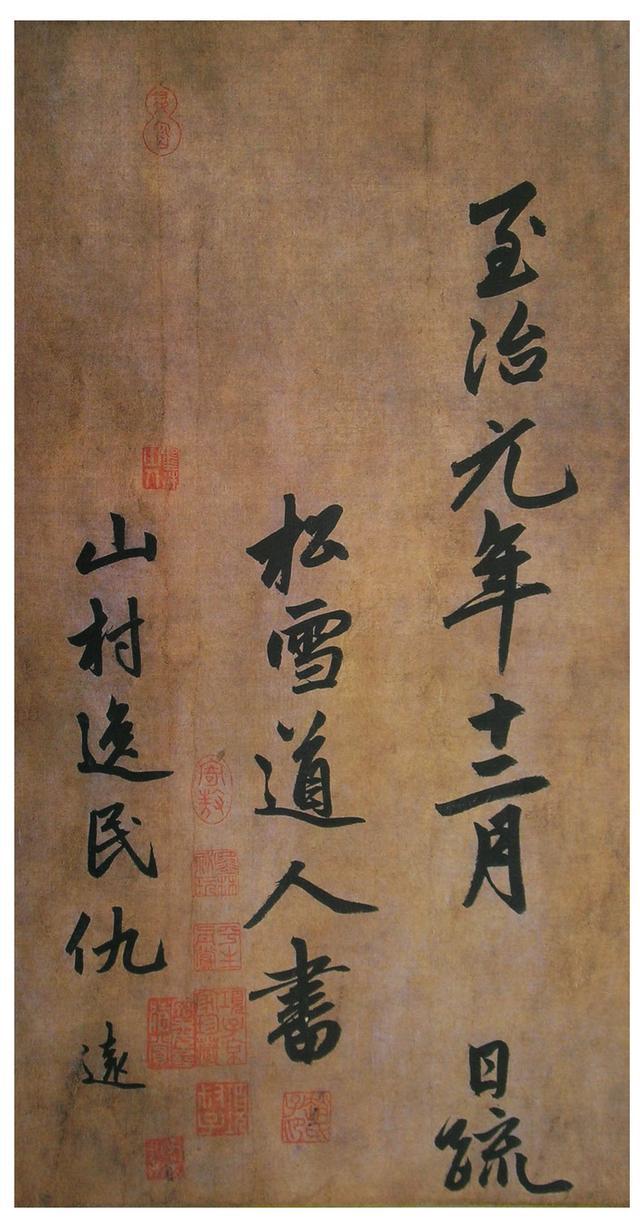 至治元年十二月 日疏
松雪道人書
山村逸民仇遠